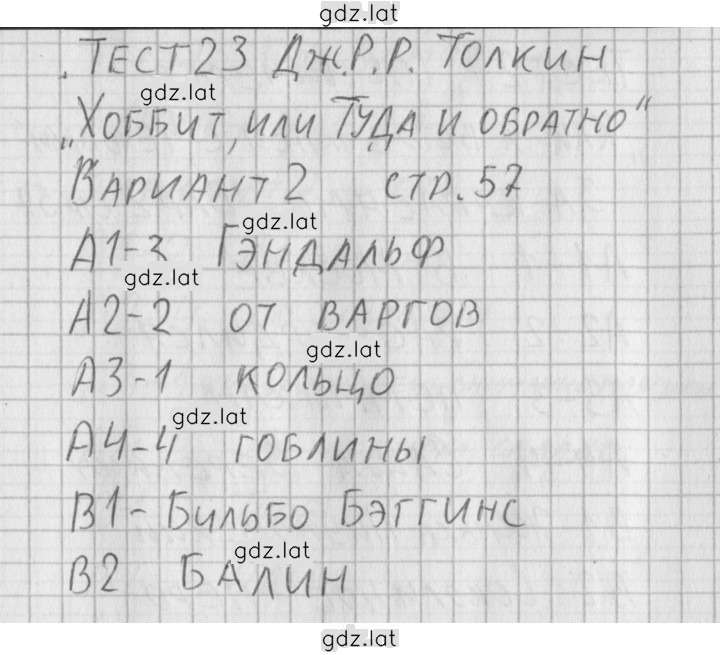 gdz.lat
. ТЕСТ 23 ДЖ.Р.Р. ТОЛКИН
gdz.lat
„ХОББИТ, ИЛИ ТУДА И ОБРАТНО“
ВАРИАНТ 2 СТР. 57
gdz.lat
А1-3 ГЭНДАЛЬФ
gdz.lat
А2-2 ОТ ВАРГОВ
gdz.lat
А3-1 КОЛЬЦО
gdz.lat
А4-4 ГОБЛИНЫ
В1- БИЛЬБО БЭГГИНС
gdz.lat
В2 БАЛИН
gdz.lat